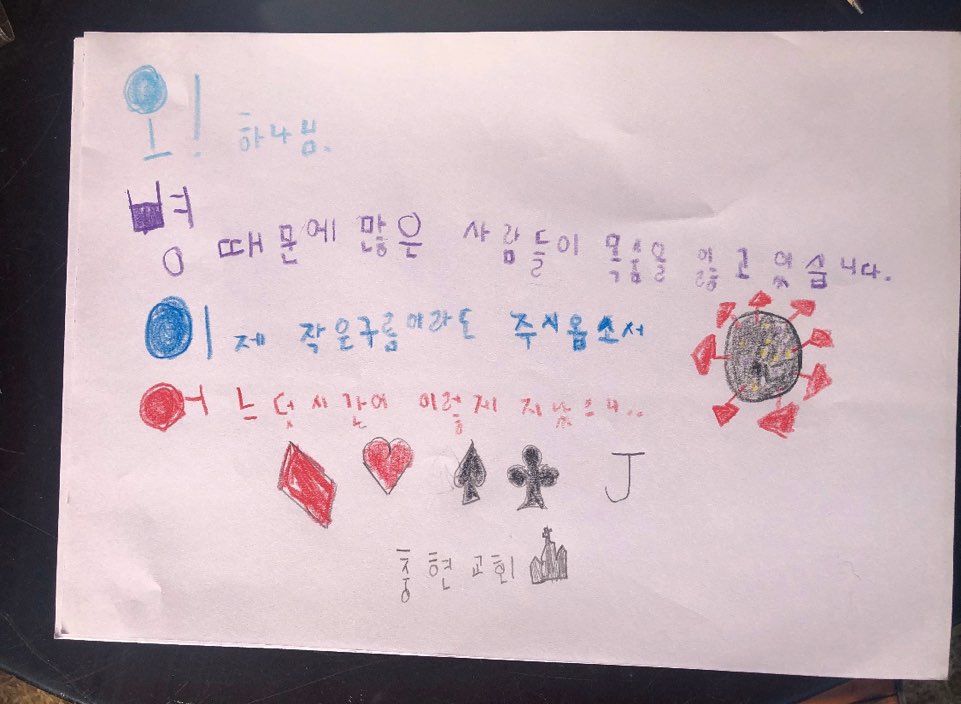 오! 하나님.
병 때문에 많은 사람들이 목숨을 잃고 있습니다.
이제 작은구름이라도 주시옵소서
어느덧 시간이 이렇게 지났으나..
J
충현교회